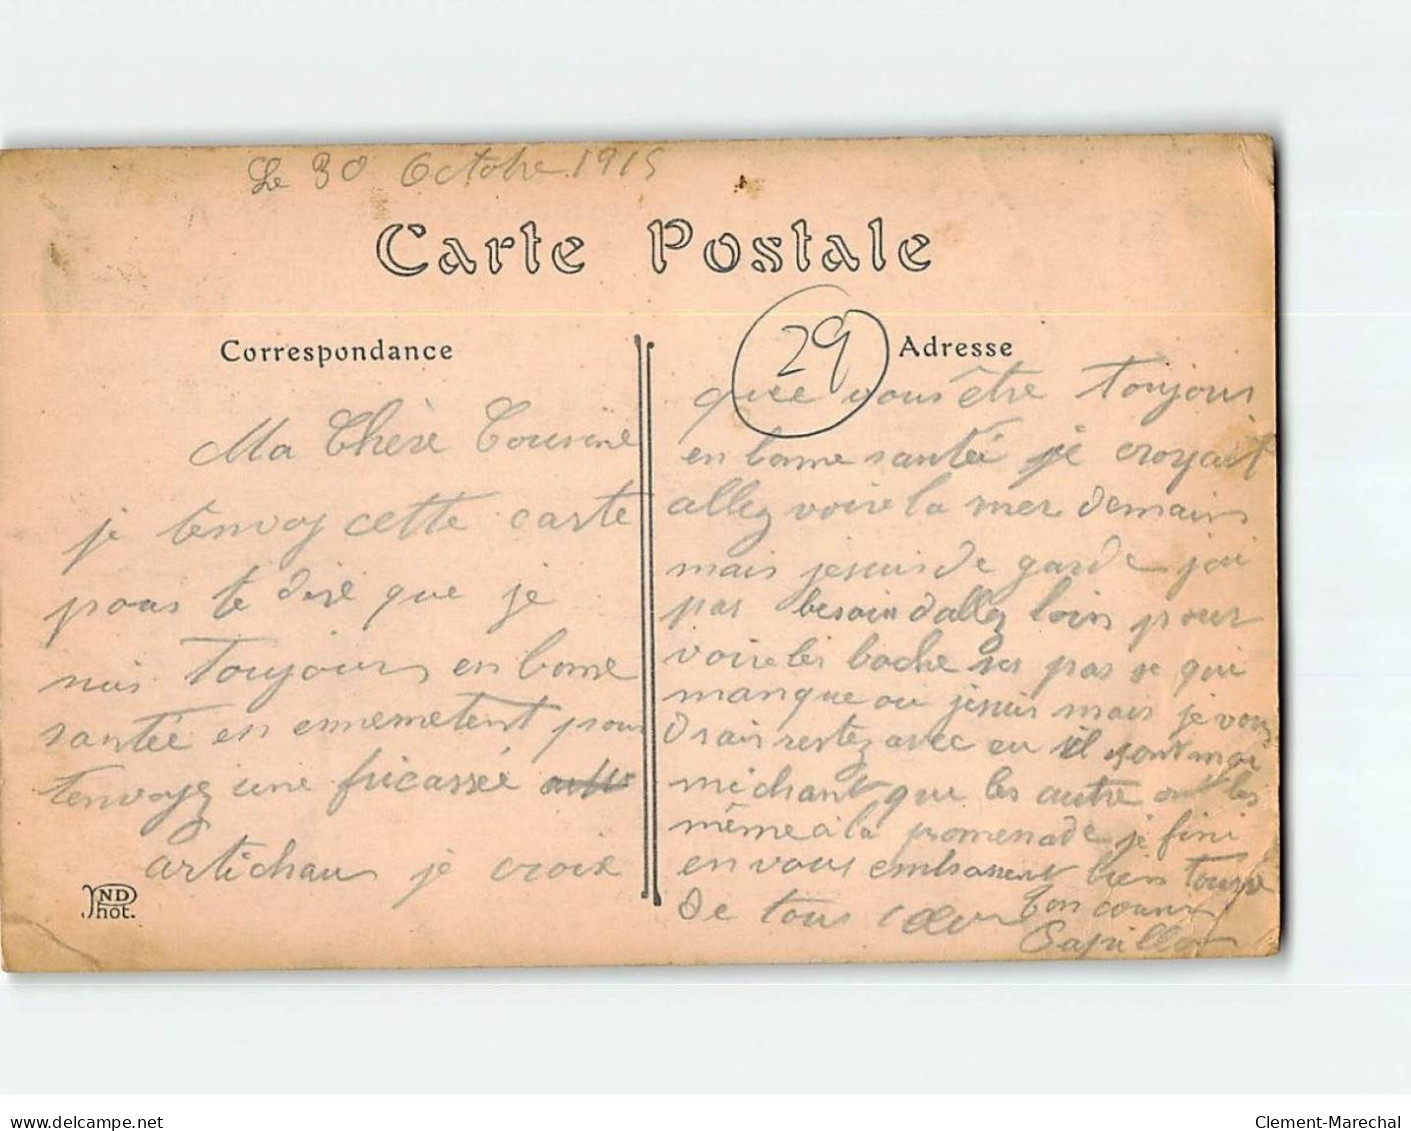 Le 30 Octobre 1915
Carte Postale
Correspondance
Ma Chère Cousine
je tenvoy cette carte
pour te dire que je
suis Toujours en bonne
santée en ememetent pour
tenvoyez une fricassée
artichau je croix
ND
Phot.
29
Adresse
que vous être Toujours
en bonne santée je croyait
allez voire la mer demain
mais jesuis de garde jai
pas besoin dallez loin pour
voire les boche ses pas se qui
manque ou jesuis mais je vou
drais restez avec eu il sont moi
michant que les autre ont les
mème à la promenade je fini
en vous embrassent bien Tous
de tous cœur Ton cousin
delcampe.net
Clement-Marechal